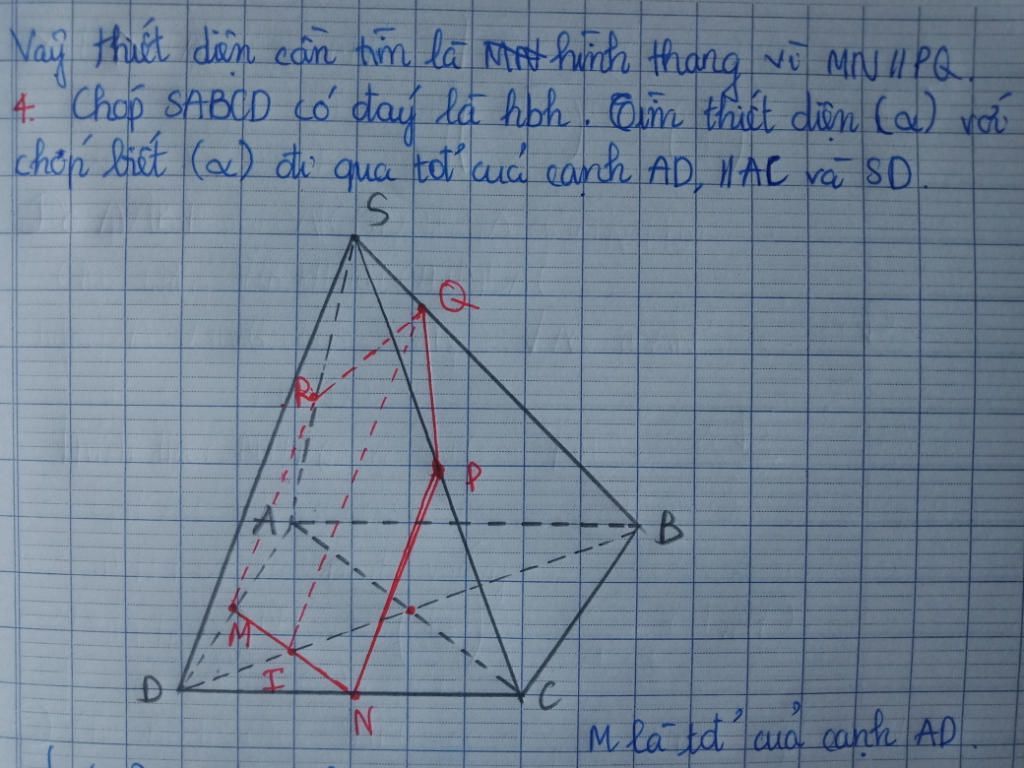 Vậy thiết diện cần tìm là hình thang vì MN // PQ.
4. Chóp SABCD có đáy là hbh. Tìm thiết diện (α) với
chóp biết (α) đi qua tđ của cạnh AD, // AC và SD.
S
Q
R
A
P
B
M
D
I
C
N
M là tđ của cạnh AD.